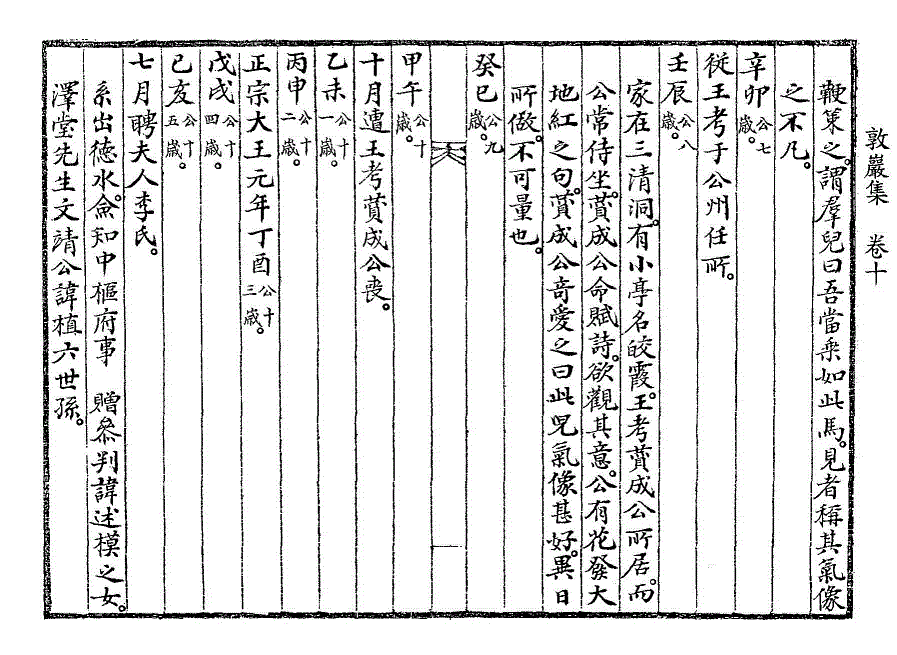 敦巖集　卷十
鞭策之。謂羣兒曰吾當乘如此馬。見者稱其氣像
之不凡。
辛卯公七歲。
從王考于公州任所。
壬辰公八歲。
家在三淸洞。有小亭名皎霞。王考薲成公所居。而
公常侍坐。薲成公命賦詩。欲觀其意。公有花發大
地紅之句。薲成公奇愛之曰此兒氣像甚好。異日
所儌。不可量也。
癸巳公九歲。
甲午公十歲。
十月遭王考薲成公喪。
乙未公十一歲。
丙申公十二歲。
正宗大王元年丁酉公十三歲。
戊戌公十四歲。
己亥公十五歲。
七月聘夫人李氏。
系出德水。僉知中樞府事　贈參判諱述模之女。
澤堂先生文靖公諱植六世孫。
一